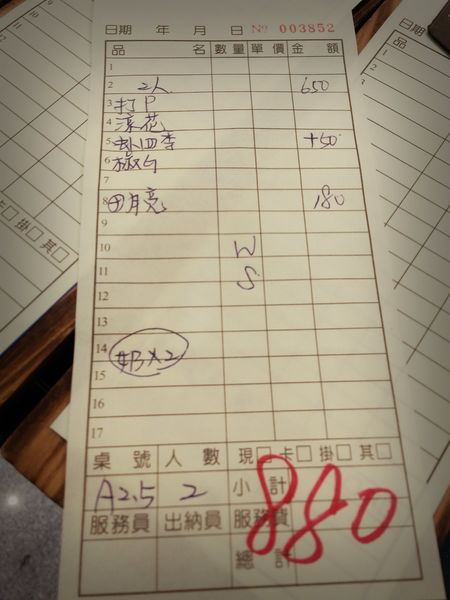 日期 年 月 日 № 003852
品 名 數量 單價 金 額
1
2 2人 650
3 打P
4 滾花
5 卦四季 +50
6 椒
7
8 田月亮 180
9
10 W
11 S
12
13
14 奶×2
15
16
17
桌 號 人 數 現□ 卡□ 掛□ 其□
A25 2 小 計 880
服務員 出納員 服務費
總 計
日期
品
1
2
8
9
10
11
卡□ 掛□ 其□